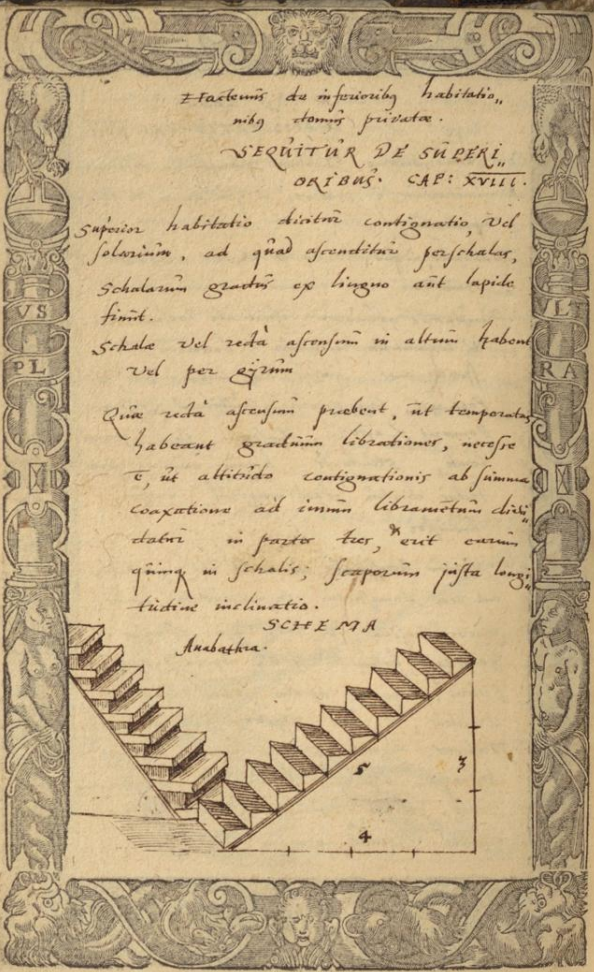 Hactenus de inferioribq habitatio„
nibq domus privatae.
SEQUITUR DE SUPERI„
ORIBUS. CAP: XVIII.
Superior habitatio dicitur contignatio, vel
solarium, ad quod ascenditur per schalas,
Schalarum gradus ex lingno aut lapide
fiunt.
Schalae vel rectà ascensum in altum habent
vel per gÿrum
VS
VL
PL
RA
Quae rectà ascensum praebent, ut temperatas
habeant graduum librationes, necesse
ē, ut altitudo contignationis ab summa
coaxatione ad imum libramētum divi„
datur in partes tres, erit earum
quinq in schalis; scaporum justa longi„
tudine inclinatio.
SCHEMA
Anabathra.
5
3
4